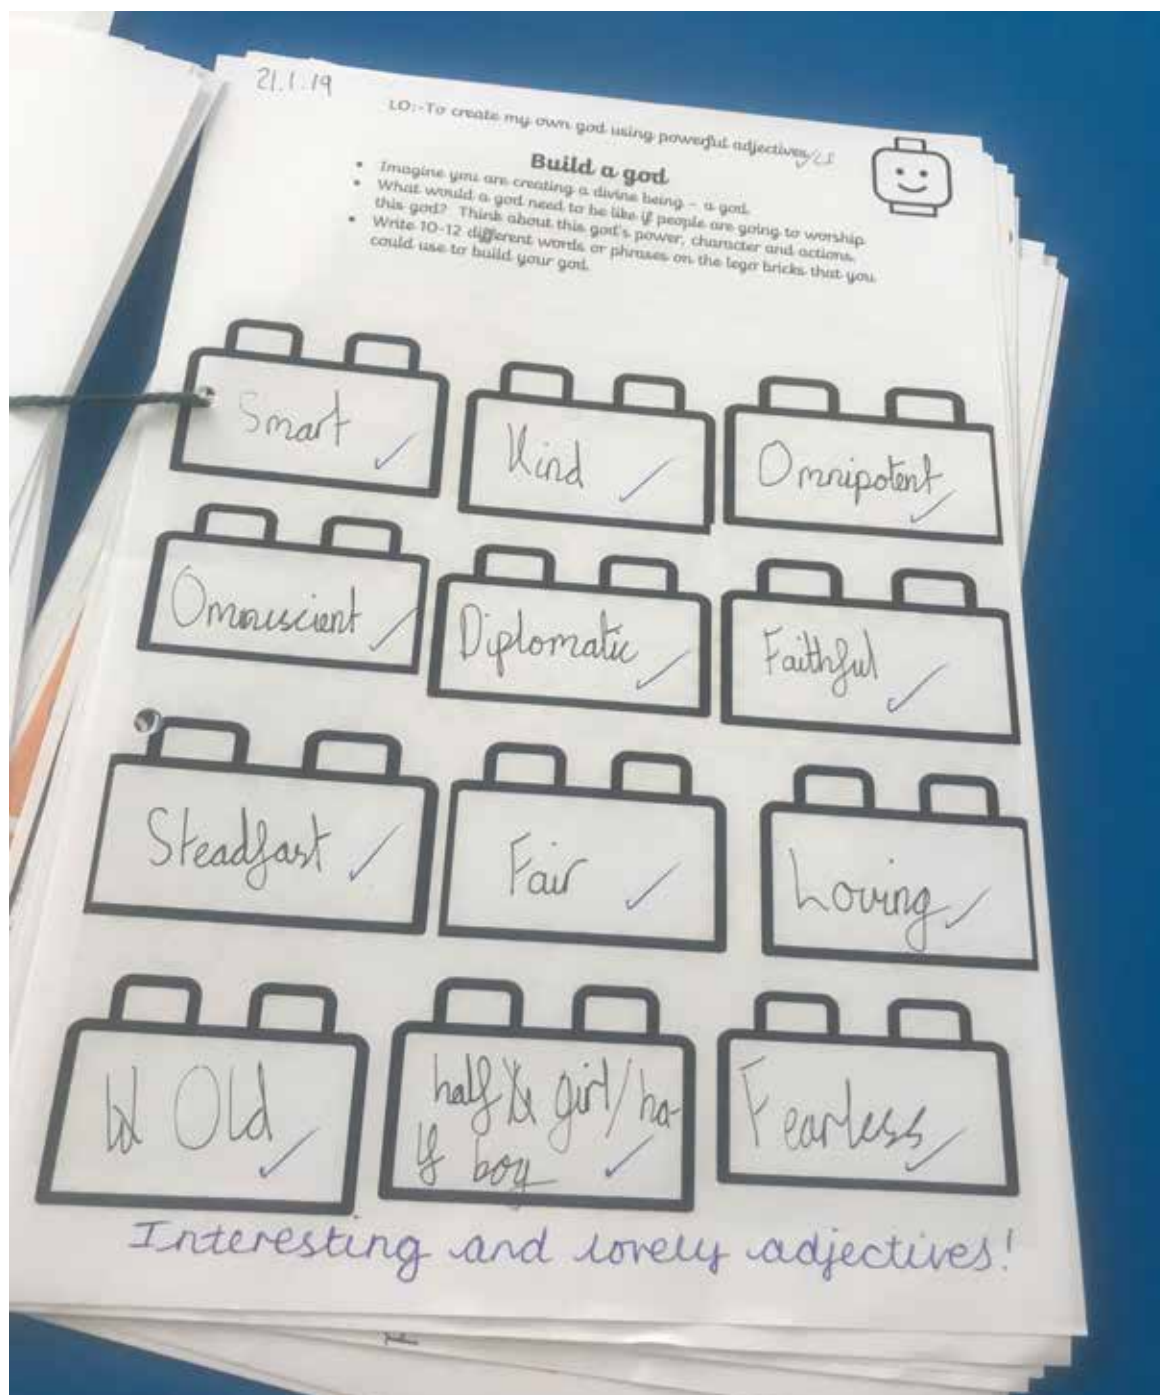 21.1.19
LO:-To create my own god using powerful adjectives
Build a god
• Imagine you are creating a divine being – a god.
• What would a god need to be like if people are going to worship
this god? Think about this god's power, character and actions.
• Write 10-12 different words or phrases on the lego bricks that you
could use to build your god.
Smart
Kind
Omnipotent
Omniscient
Diplomatic
Faithful
Steadfast
Fair
Loving
Old
half girl/ha-
lf boy
Fearless
Interesting and lovely adjectives!